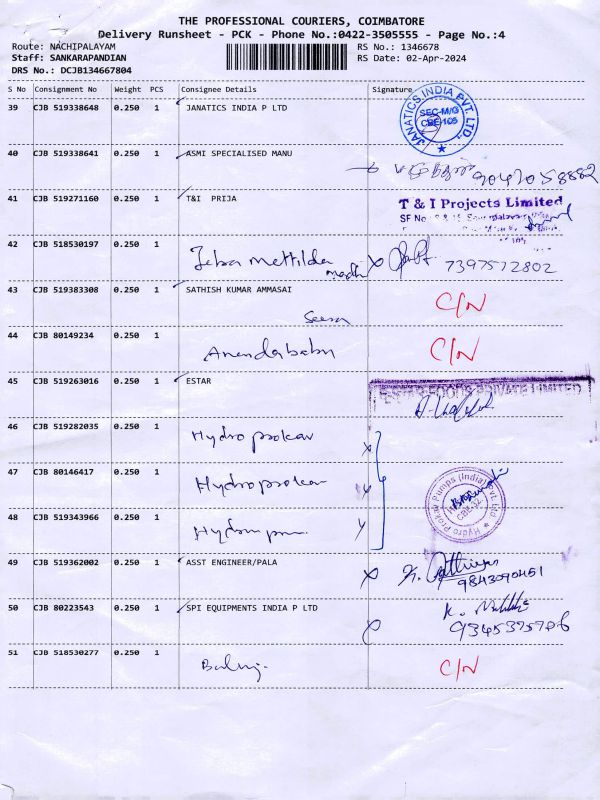 THE PROFESSIONAL COURIERS, COIMBATORE
Delivery Runsheet - PCK - Phone No.:0422-3505555 - Page No.:4
Route: NACHIPALAYAM RS No.: 1346678
Staff: SANKARAPANDIAN RS Date: 02-Apr-2024
DRS No.: DCJB134667804
S No Consignment No Weight PCS Consignee Details Signature
39 CJB 519338648 0.250 1 JANATICS INDIA P LTD
JANATICS INDIA PVT. LTD.
SEC-M/G
CBE-105
40 CJB 519338641 0.250 1 ASMI SPECIALISED MANU
9047058882
41 CJB 519271160 0.250 1 T&I PRIJA
T & I Projects Limited
SF No
42 CJB 518530197 0.250 1
Jeba Mettilda
7397572802
43 CJB 519383308 0.250 1 SATHISH KUMAR AMMASAI C/N
44 CJB 80149234 0.250 1 Anandababu C/N
45 CJB 519263016 0.250 1 ESTAR
PRIVATE LIMITED
46 CJB 519282035 0.250 1 Hydro prokav
47 CJB 80146417 0.250 1 Hydroprokav
Hydro Prokav Pumps (India) Pvt. Ltd
48 CJB 519343966 0.250 1
49 CJB 519362002 0.250 1 ASST ENGINEER/PALA
9843090451
50 CJB 80223543 0.250 1 SPI EQUIPMENTS INDIA P LTD
51 CJB 518530277 0.250 1 C/N